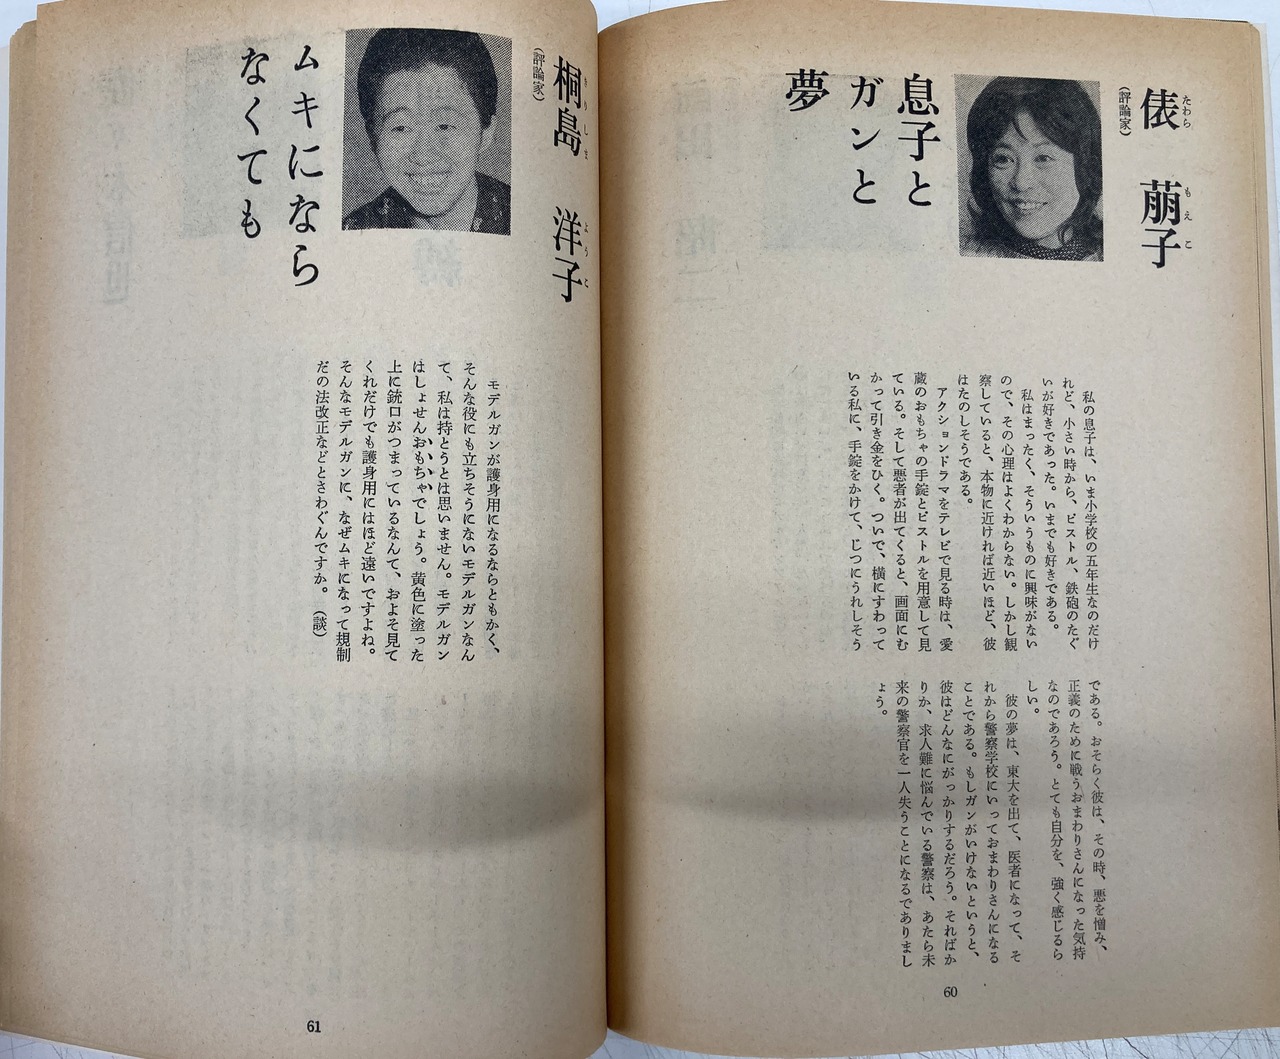 俵 萠子
たわら もえこ
（評論家）
息子と
ガンと
夢
私の息子は、いま小学校の五年生なのだけ
れど、小さい時から、ピストル、鉄砲のたぐ
いが好きであった。いまでも好きである。
私はまったく、そういうものに興味がない
ので、その心理はよくわからない。しかし観
察していると、本物に近ければ近いほど、彼
はたのしそうである。
アクションドラマをテレビで見る時は、愛
蔵のおもちゃの手錠とピストルを用意して見
ている。そして悪者が出てくると、画面にむ
かって引き金をひく。ついで、横にすわって
いる私に、手錠をかけて、じつにうれしそう
である。おそらく彼は、その時、悪を憎み、
正義のために戦うおまわりさんになった気持
なのであろう。とても自分を、強く感じるら
しい。
彼の夢は、東大を出て、医者になって、そ
れから警察学校にいっておまわりさんになる
ことである。もしガンがいけないというと、
彼はどんなにがっかりするだろう。そればか
りか、求人難に悩んでいる警察は、あたら未
来の警察官を一人失うことになるでありまし
ょう。
60
桐島 洋子
きりしま ようこ
（評論家）
ムキになら
なくても
モデルガンが護身用になるならともかく、
そんな役にも立ちそうにないモデルガンなん
て、私は持とうとは思いません。モデルガン
はしょせんおもちゃでしょう。黄色に塗った
上に銃口がつまっているなんて、およそ見て
くれだけでも護身用にはほど遠いですよね。
そんなモデルガンに、なぜムキになって規制
だの法改正などとさわぐんですか。（談）
61